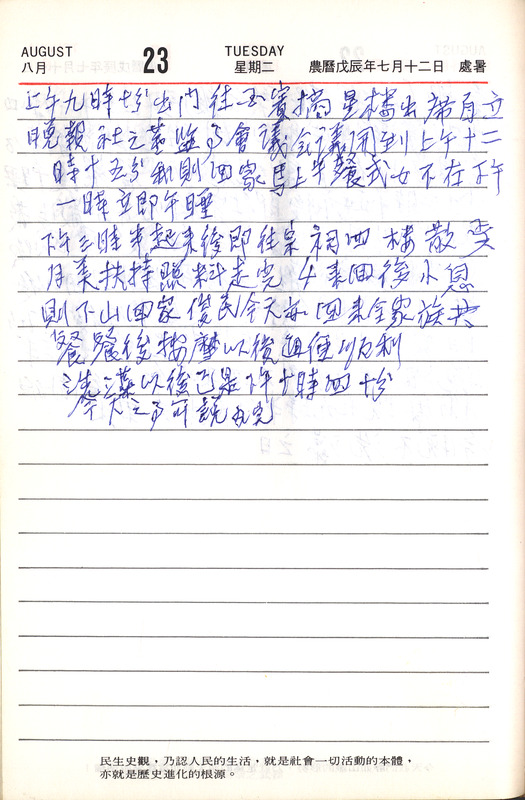 AUGUST
八月
23
TUESDAY
星期二
農曆戊辰年七月十二日 處暑
上午九時十分出門往國賓摘星樓出席自立
晚報社之董監事會議會議開到上午十二
時十五分 則回家馬上午餐 不在 下午
一時立即午睡
下午三時半起來後即往 四樓散步
月美扶持照料走完4 回後小息
則下山回家俊民今天每回來全家族共
餐 餐後按摩以後 便順利
洗澡以後已是下午十時四十分
今天之事可說 完
民生史觀，乃認人民的生活，就是社會一切活動的本體，
亦就是歷史進化的根源。